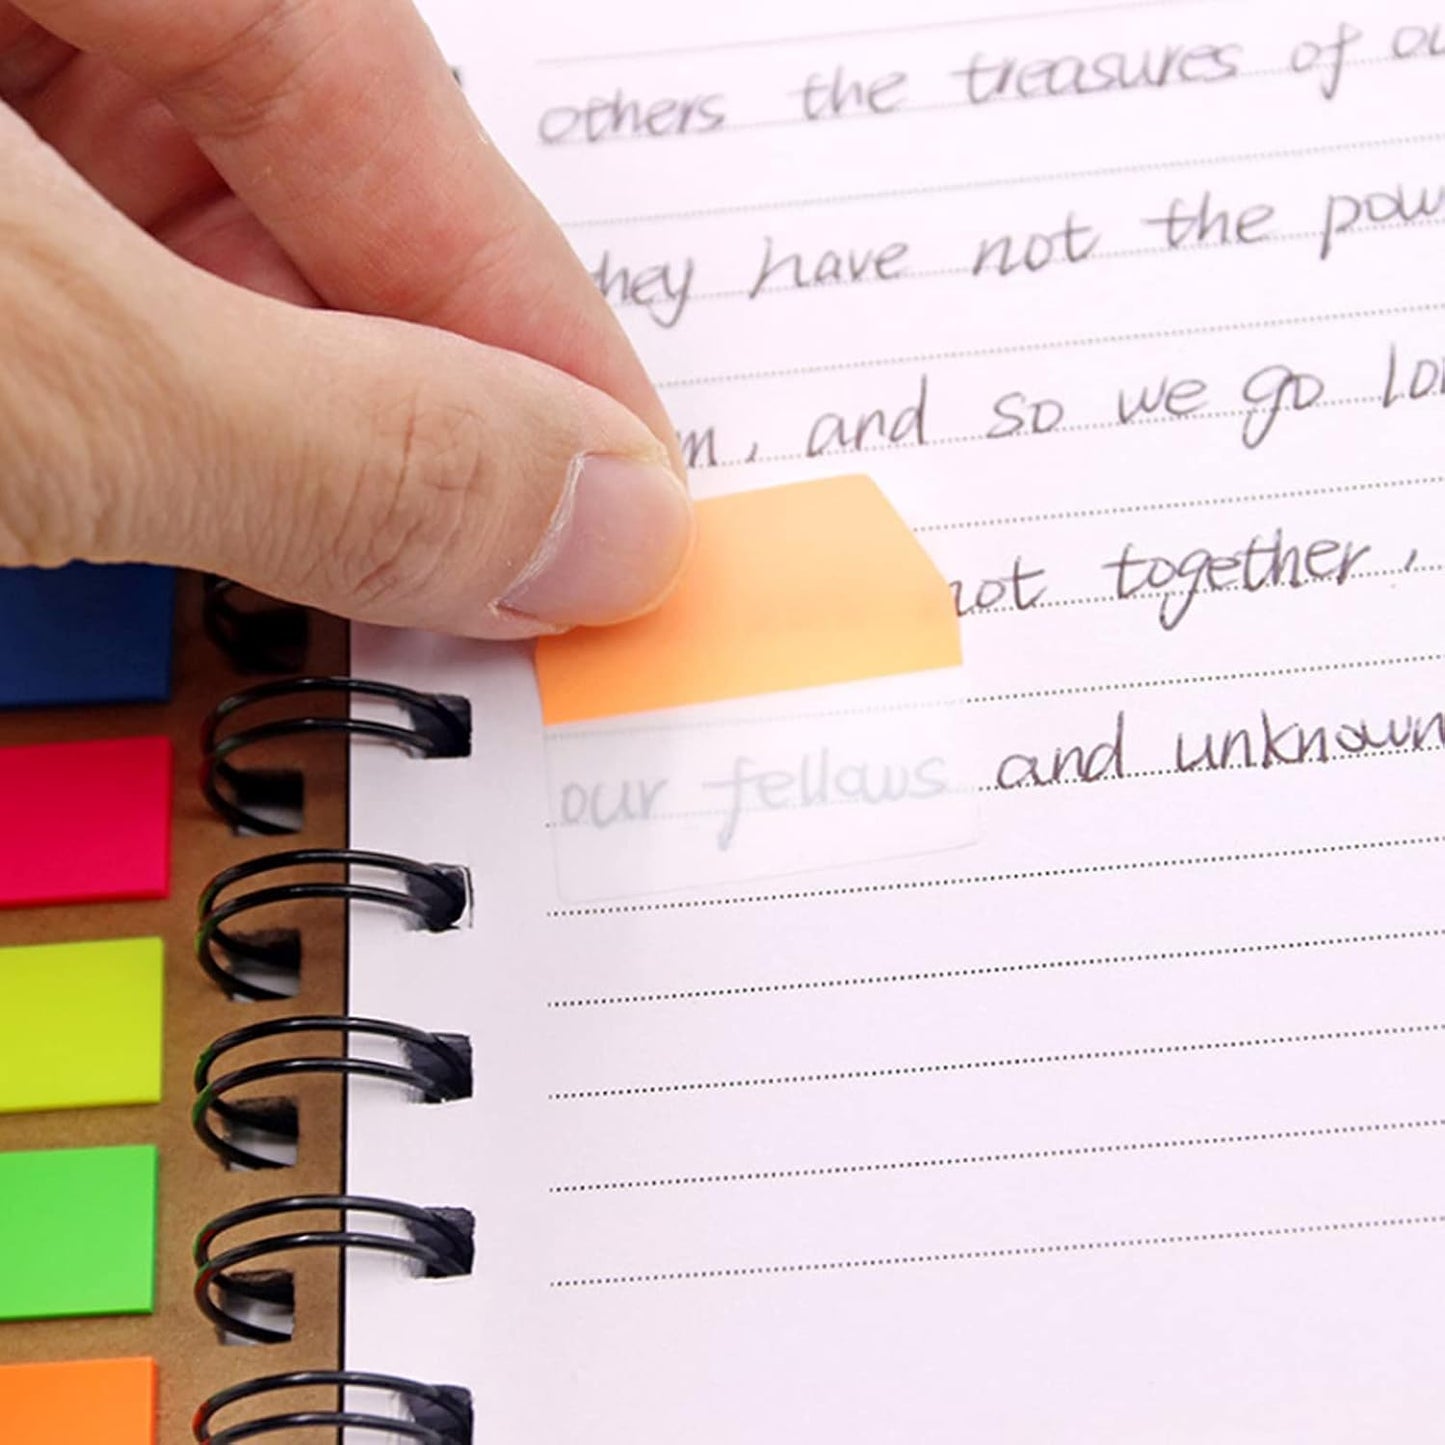 others the treasures of
hey have not the
m, and so we go
not together,
our fellows and unknown